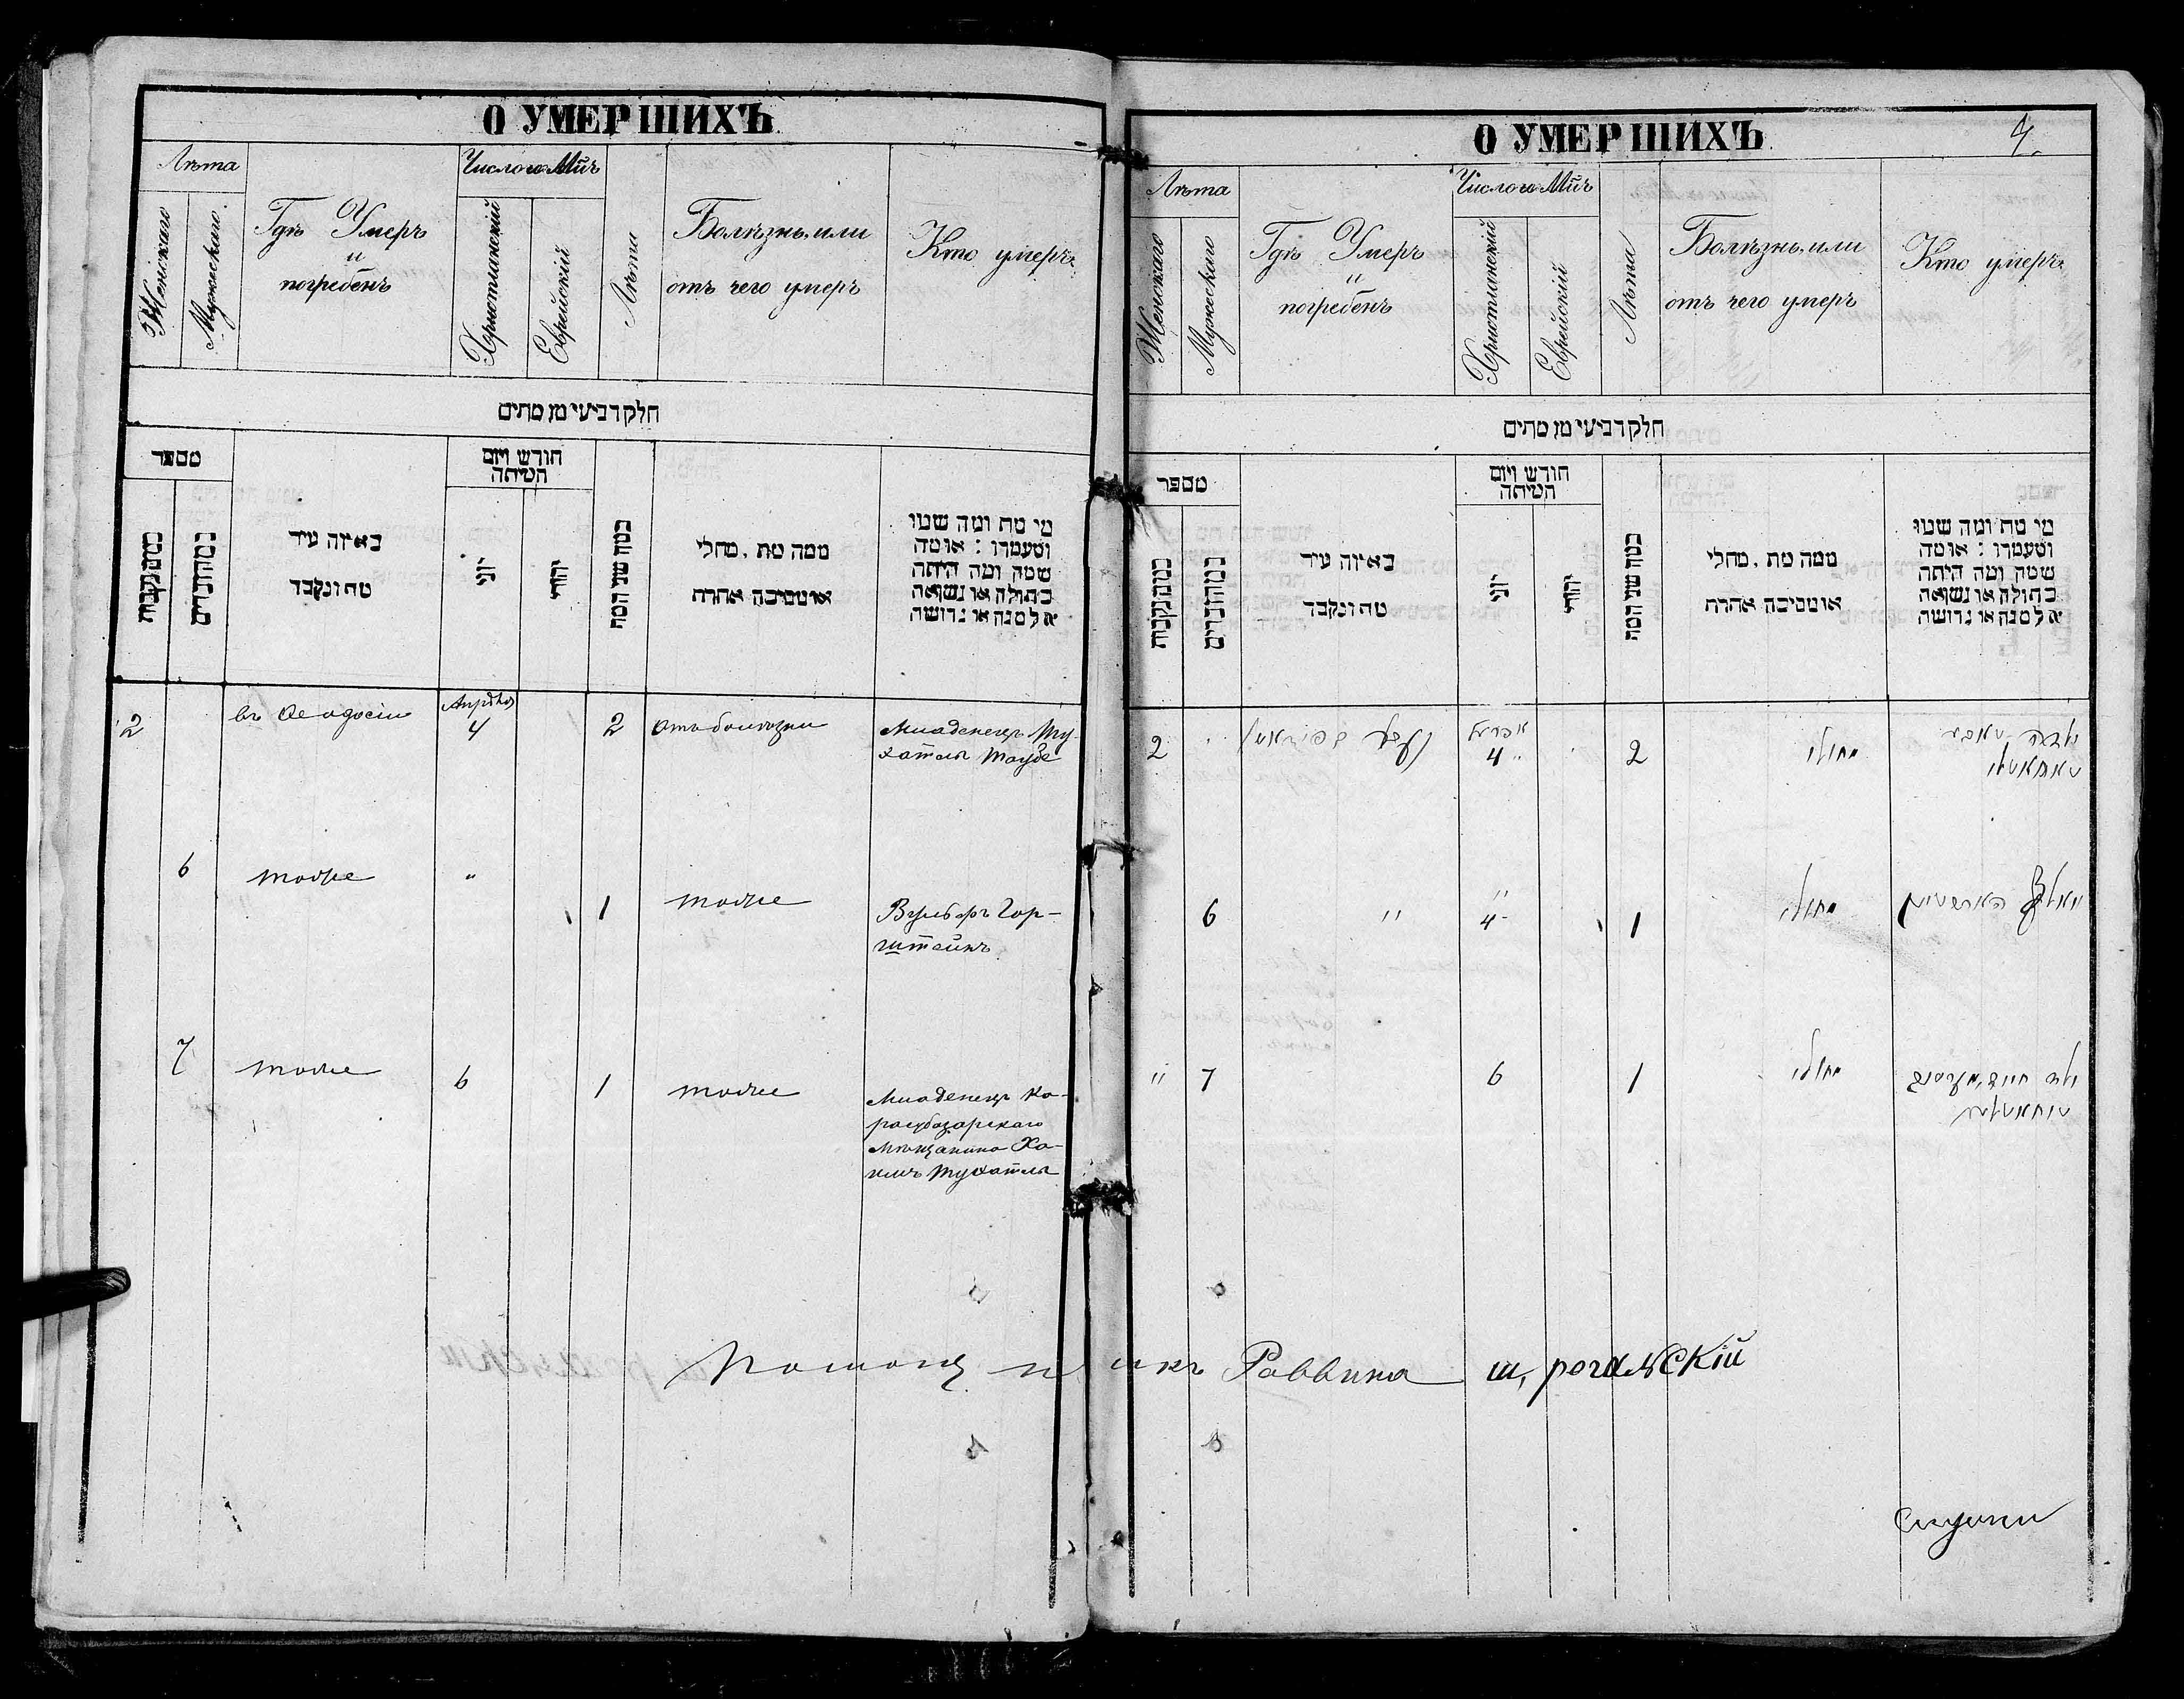 О УМЕРШИХЪ
Лѣта
Женскаго
Мужескаго.
Гдѣ Умеръ
и
погребенъ
Число и Мц̃ъ
Христианскій
Еврейскій
Лѣта
Болѣзнь, или
отъ чего умеръ
Кто умеръ
חלק רביעי מן מתים
מספר
כמות נקבות
כמות זכרים
באיזה עיר
מת ונקבר
חודש ויום
המיתה
יוני
יהודי
כמה שני המת
ממה מת . מחלי
או מסיבה אחרת
מי מת ומה שמו
ומעמדו : או מה
שמה ומה היתה
בתולה או נשואה
אלמנה או גרושה
2
въ Ѳеодосіи
Апрѣля
4
2
отъ болѣзни
Младенецъ Ту-
хатлы Таубе
6
тоже
"
1
тоже
Вульфъ Гор-
штейнъ
7
тоже
6
1
тоже
Младенецъ Ка-
расубазарскаго
Мѣщанина Ха-
имъ Тухатлы
Помощникъ Раввина ш, рогальскій
О УМЕРШИХЪ
4.
Лѣта
Женскаго
Мужескаго
Гдѣ Умеръ
и
погребенъ
Число и Мц̃ъ
Христианскій
Еврейскій
Лѣта
Болѣзнь, или
отъ чего умеръ
Кто умеръ
חלק רביעי מן מתים
מספר
כמות נקבות
כמות זכרים
באיזה עיר
מת ונקבר
חודש ויום
המיתה
יוני
יהודי
כמה שני המת
ממה מת . מחלי
או מסיבה אחרת
מי מת ומה שמו
ומעמדו : או מה
שמה ומה היתה
בתולה או נשואה
אלמנה או גרושה
2
אפריל
4
2
מחולי
6
"
"
4
1
מחולי
הארשטיין
"
7
6
1
מחולי
ילד חיים